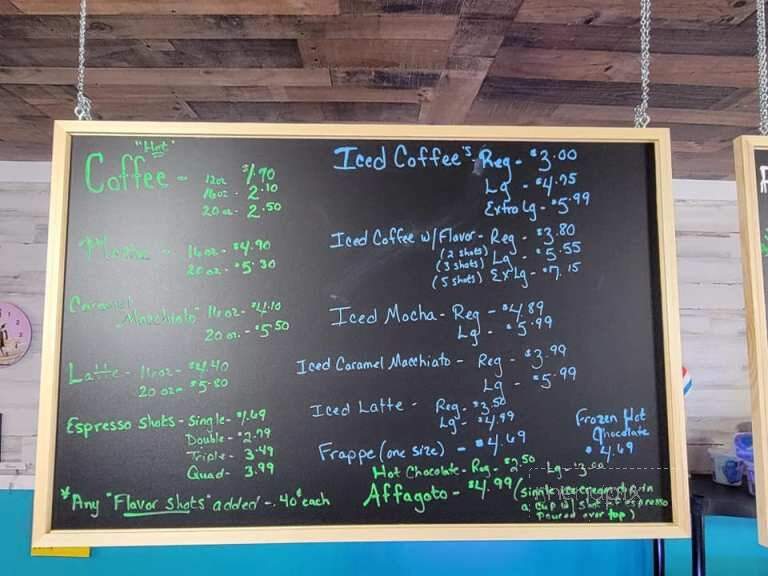 "Hot"
Coffee - 12oz $1.90
16oz - 2.10
20oz - 2.50
Mocha - 16oz - $4.90
20oz - $5.30
Caramel
Macchiato - 16oz - $4.10
20oz. - $5.50
Latte - 16oz - $4.40
20oz - $5.80
Espresso Shots - Single - $1.69
Double - $2.79
Triple - 3.49
Quad - 3.99
*Any "Flavor Shots" added - .40¢ each
Iced Coffee's - Reg - $3.00
Lg - $4.75
Extra Lg - $5.99
Iced Coffee w/ Flavor - Reg - $3.80
(2 shots) Lg - $5.55
(3 shots)
(5 shots) Ex Lg - $7.15
Iced Mocha - Reg - $4.89
Lg - $5.99
Iced Caramel Macchiato - Reg - $3.99
Lg - $5.99
Iced Latte - Reg - $3.50
Lg - $4.99
Frappe (one size) - $4.69
Frozen Hot
Chocolate
$4.69
Hot Chocolate - Reg - $2.50 Lg - $3.00
Affagoto - $4.99 (single
a cup w/ shot espresso
Poured over top)